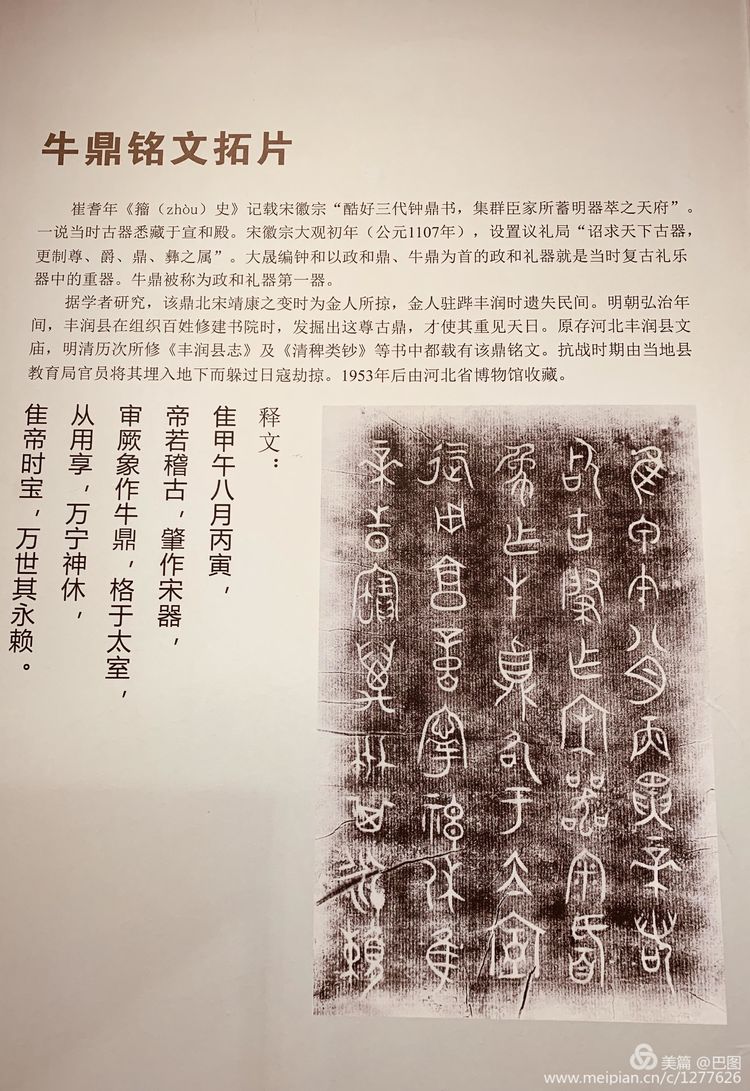 牛鼎铭文拓片
崔耆年《籀（zhòu）史》记载宋徽宗“酷好三代钟鼎书，集群臣家所蓄明器萃之天府”。
一说当时古器悉藏于宣和殿。宋徽宗大观初年（公元1107年），设置议礼局“诏求天下古器，
更制尊、爵、鼎、彝之属”。大晟编钟和以政和鼎、牛鼎为首的政和礼器就是当时复古礼乐
器中的重器。牛鼎被称为政和礼器第一器。
据学者研究，该鼎北宋靖康之变时为金人所掠，金人驻跸丰润时遗失民间。明朝弘治年
间，丰润县在组织百姓修建书院时，发掘出这尊古鼎，才使其重见天日。原存河北丰润县文
庙，明清历次所修《丰润县志》及《清稗类钞》等书中都载有该鼎铭文。抗战时期由当地县
教育局官员将其埋入地下而躲过日寇劫掠。1953年后由河北省博物馆收藏。
释文：
隹甲午八月丙寅，
帝若稽古，肇作宋器，
审厥象作牛鼎，格于太室，
从用享，万宁神休，
隹帝时宝，万世其永赖。
美篇 @巴图
www.meipian.cn/c/1277626